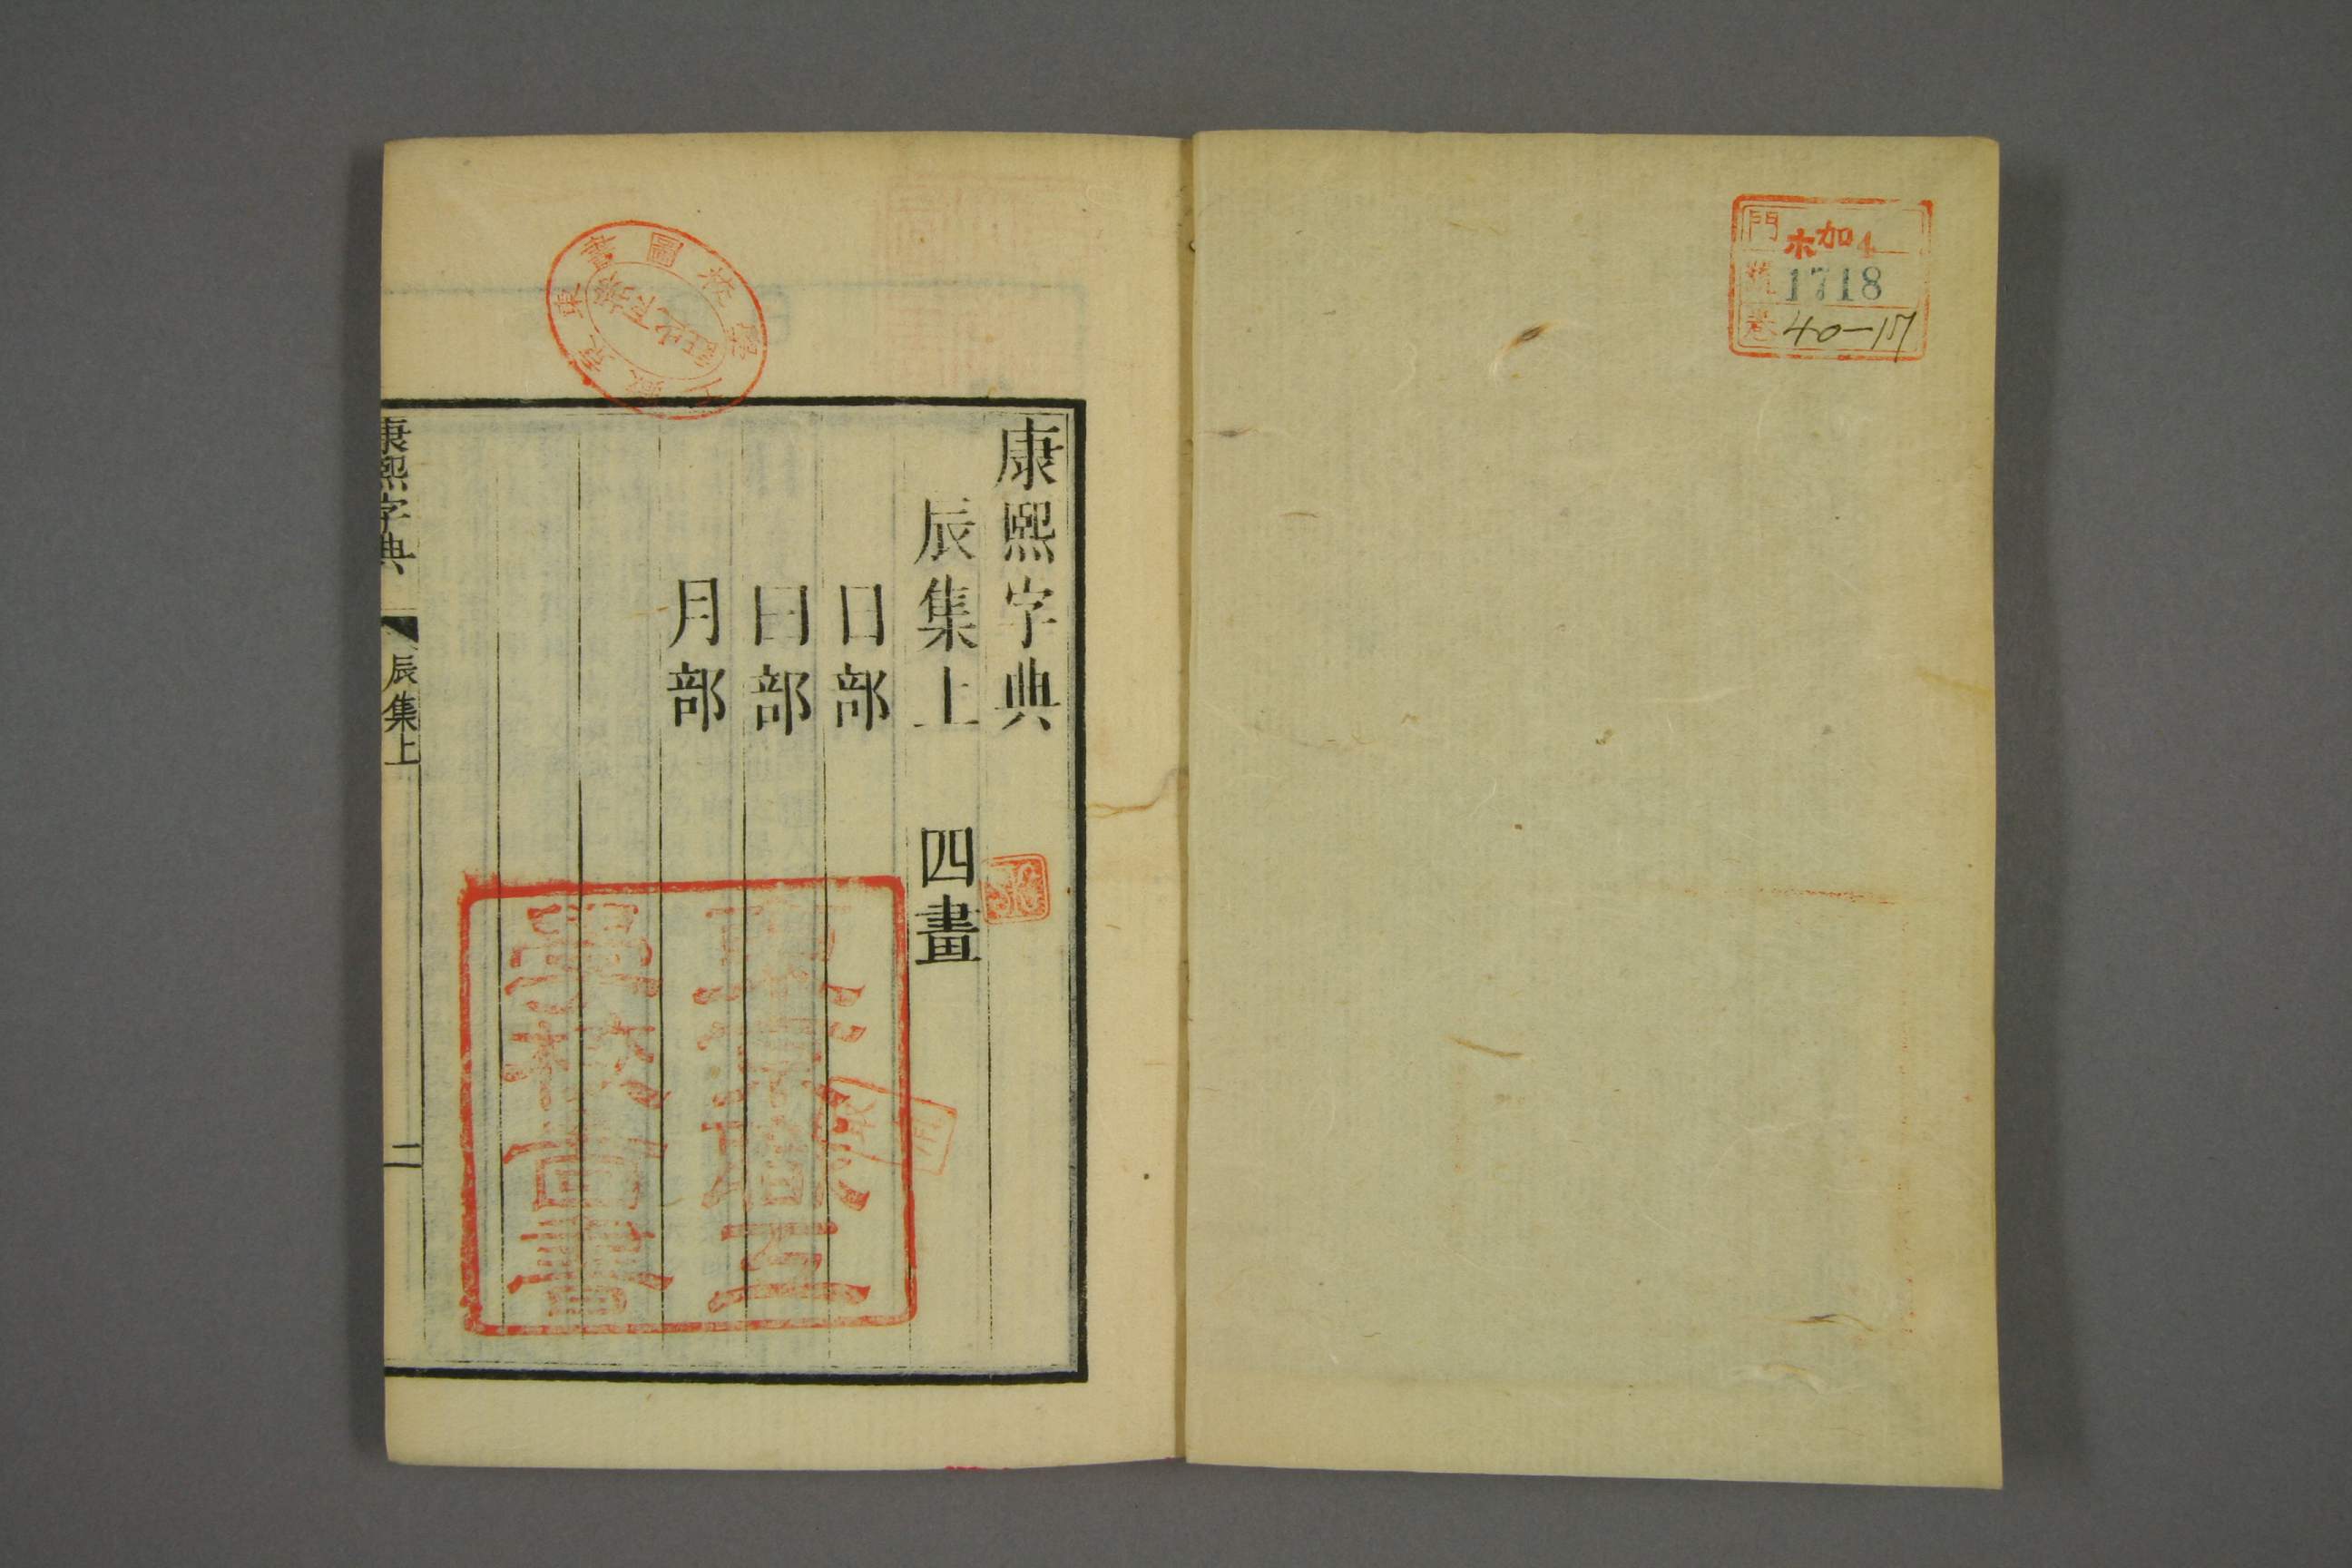 門 ホ加4
號 1718
卷 40-17
康熙字典
辰集上 四畫
日部
曰部
月部
康熙字典 辰集上 二